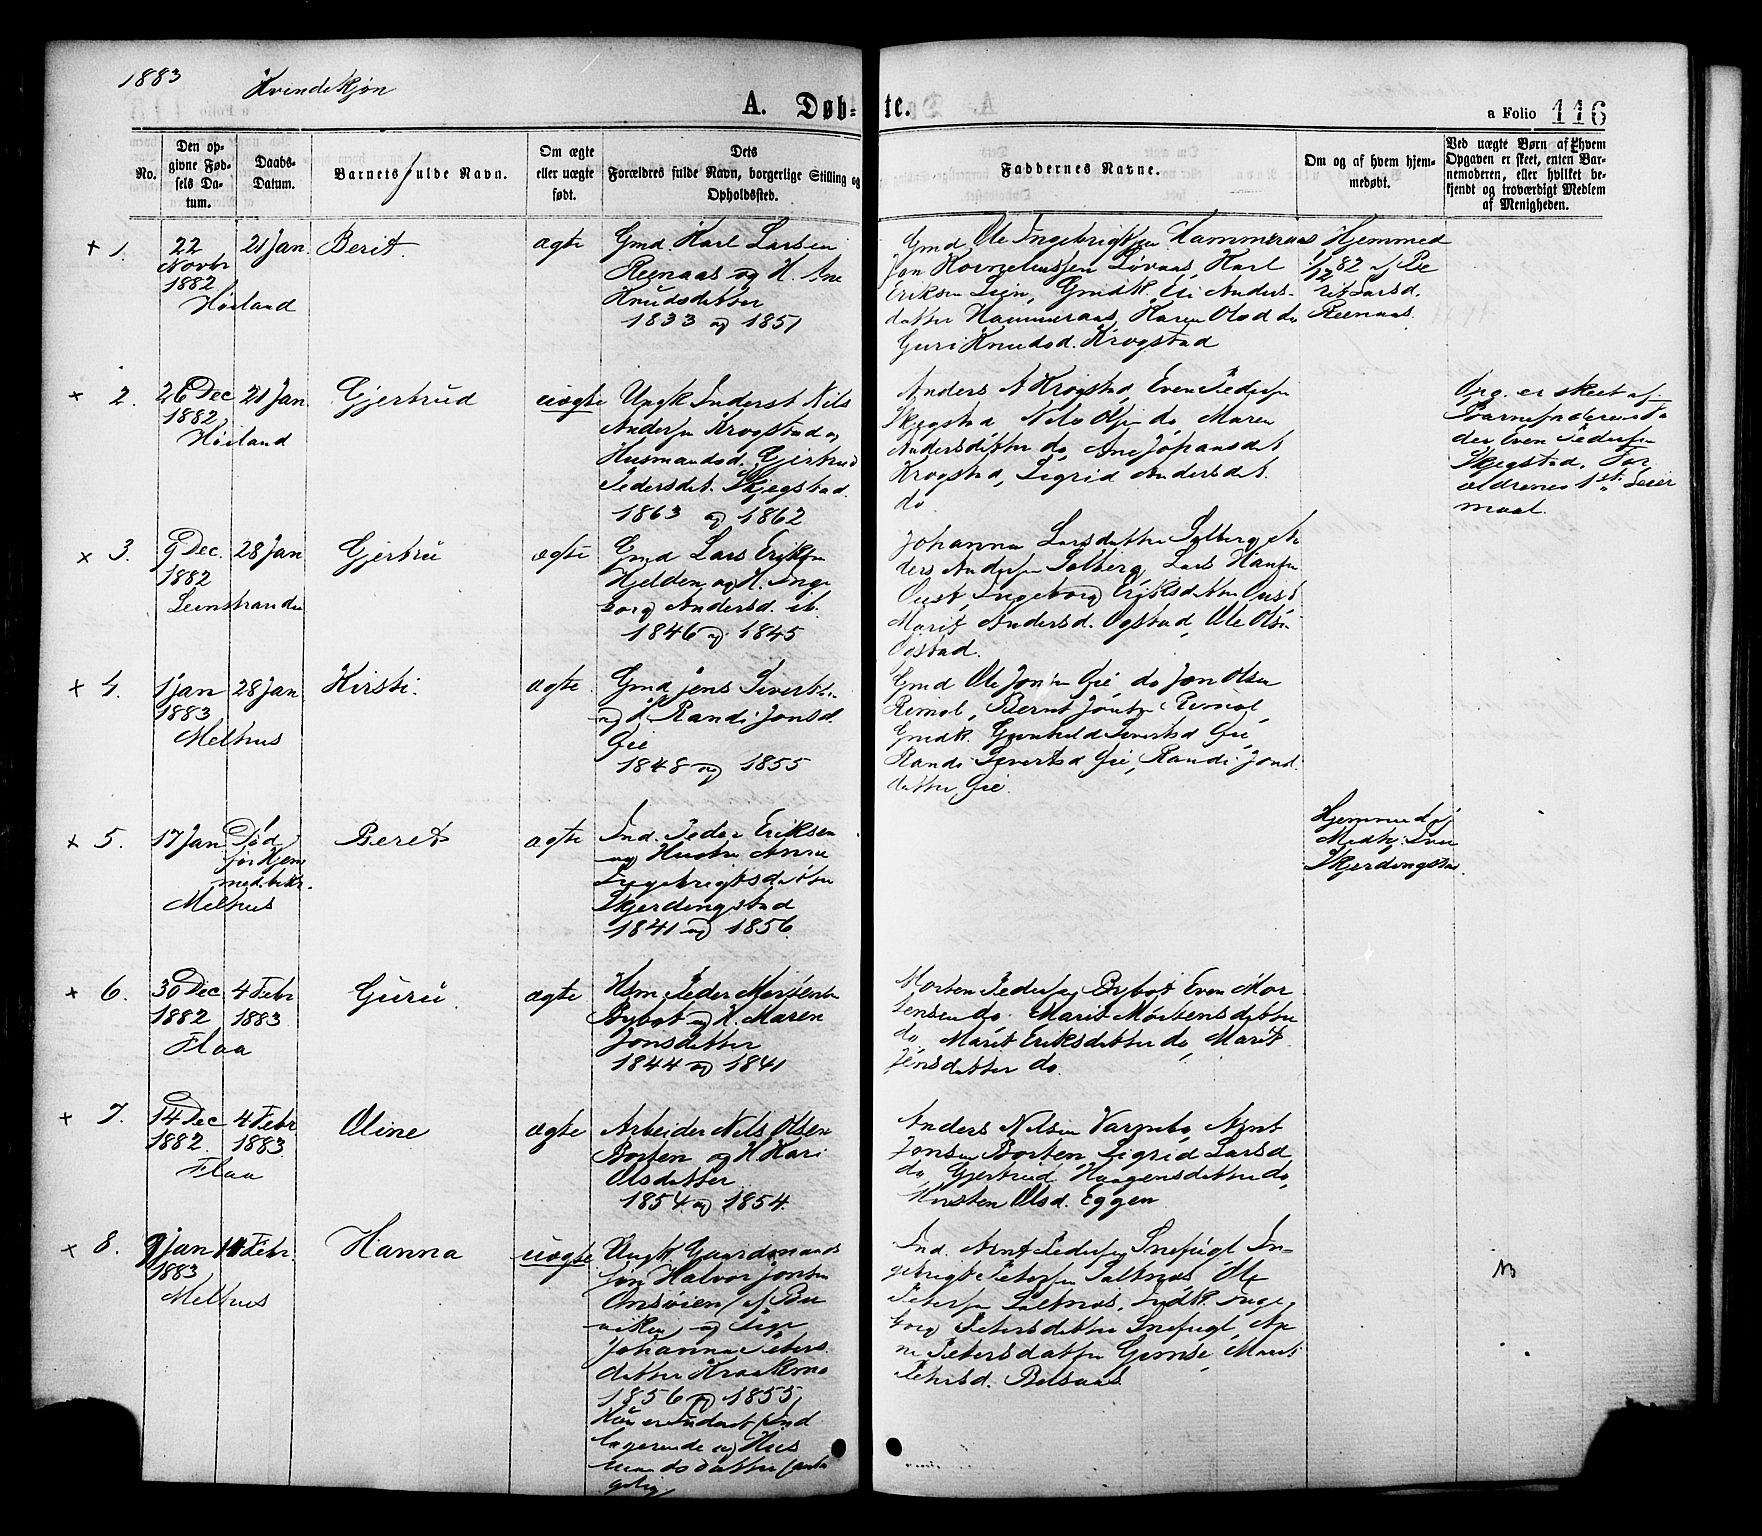 1883 Kvindekjøn
A. Døb-te.
a Folio 116
No.
Den op-
givne Fød-
sels Da-
tum.
Daabs-
Datum.
Barnets fulde Navn.
Om ægte
eller uægte
født.
Dets
Forældres fulde Navn, borgerlige Stilling og
Opholdssted.
Faddernes Navne.
Om og af hvem hjem-
medøbt.
Ved uægte Børn af hvem
Opgaven er skeet, enten Bar-
nemoderen, eller hvilket be-
kjendt og troværdigt Medlem
af Menigheden.
+ 1.
22
Novbr
1882
Høiland
21 Jan.
Berit.
ægte
Gmd Karl Larsen
Reenaas og H. Ane
Knudsdatter
1833 og 1851
Gmd Ole Ingebrigtsen Hammeraas
Jon Korneliussen Løvaas, Karl
Eriksen Lein, Gmdk. Eli Anders-
datter Hammeraas, Karen Olsd do
Guri Knudsd. Krogstad
Hjemmed
1/12 82 af Be
rit Larsd.
Reenaas.
+ 2.
26 Dec
1882
Høiland
21 Jan.
Gjertrud
uægte
Ungk Inderst Nils
Andersen Krogstad og
Husmandsd. Gjertrud
Pedersdet. Skjegstad.
1863 og 1862
Anders A Krogstad, Even Pedersen
Skjegstad, Nils Olsen do, Maren
Andersdatter do, Ane Johansdet
Krogstad, Sigrid Andersdet.
do
Opg. er skeet af
Barnefaderen Fa
der Even Pedersen
Skjegstad. For
ældrenes 1ste Leier
maal.
+ 3.
9 Dec.
1882
Leinstranden
28 Jan
Gjertru
ægte
Gmd Lars Eriksen
Hjelden og H. Inge
borg Andersd. ib.
1846 og 1845
Johanna Larsdatter Solberg, An
ders Andersen Solberg, Lars Hansen
Oust, Ingeborg Eriksdatter Oust
Marit Andersd. Ogstad, Ole Olsen
Ogstad.
+ 4.
1 Jan
1883
Melhus
28 Jan
Kirsti.
ægte.
Gmd Jens Sivertsen
og H. Randi Jonsd.
Øie
1848 og 1855
Gmd Ole Jonsen Øie do Jon Olsen
Rimol, Bernt Jonsen Rimol,
Gmdk. Gunhild Sivertsd Øie,
Randi Sivertsd Øie, Randi Jons
datter Øie.
+ 5.
17 Jan
Melhus
Død
før Hjem
med. bekr.
Beret
ægte
Ind. Peder Eriksen
og Hustru Anne
Ingebrigtsdatter
Skjerdingstad
1841 og 1856
Hjemmedø
Skjerdingstad.
+ 6.
30 Dec
1882
Flaa
4 Febr
1883
Guru
ægte
Hsm Peder Mortensen
Bybot og H. Maren
Jonsdatter
1844 og 1841
Morten Pedersen Bybot Even Mor
tensen do. Marit Mortensdatter
do, Marit Eriksdatter do, Marit
Jensdatter do.
+ 7.
14 Dec
1882
Flaa
4 Febr
1883
Oline
ægte
Arbeider Nils Olsen
Borten og H Kari
Olsdatter
1854 og 1854.
Anders Nilsen Varmbo, Arnt
Jonsen Borten, Sigrid Larsd
do, Gjertrud Haagensdatter do,
Kirsten Olsd. Eggen
+ 8.
9 Jan
1883
Melhus
11 Febr.
Hanna
uægte
Ungk. Gaardmands
søn Halvor Jonsen
Onsøien af Bu
viken og Pige
Johanna Peters
datter Kraakmo
1856 og 1855,
Han er Inderst (Ind
logerende og Hus
mandsdatter
Ind. Arnt Pedersen Snefugl In-
gebrigt Petersen Saltnes, Ole
Petersen Saltnes, Indk. Inge
borg Petersdatter Snefugl, An
ne Petersdatter Gimse, Marit
Petersd. Belsaas.
NB